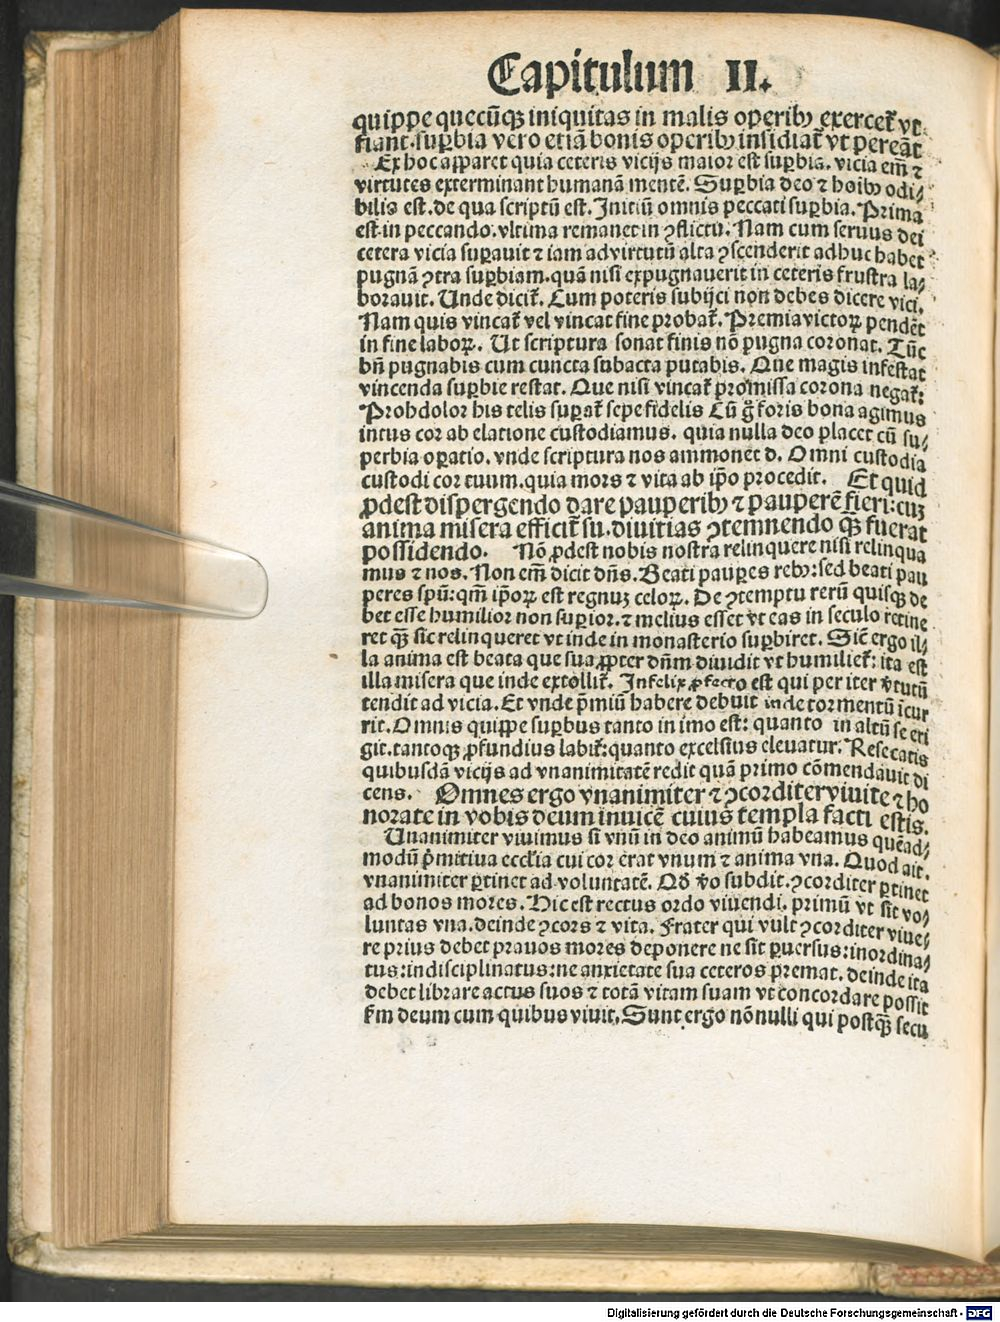 Capitulum II.
quippe quecūqꝫ iniquitas in malis operibꝰ exercet᷑ vt
fiant. suꝑbia vero etiā bonis operibꝰ insidiat᷑ vt pereāt
Ex hoc apparet quia ceteris vicijs maior est suꝑbia. vicia em̄ ⁊
virtutes exterminant humanā mentē. Suꝑbia deo ⁊ hoibꝰ odi⸗
bilis est. de qua scriptū est. Initiū omnis peccati suꝑbia. Prima
est in peccando. vltima remanet in ꝯflictu. Nam cum seruus dei
cetera vicia suꝑauit ⁊ iam ad virtutū alta ꝯscenderit adhuc habet
pugnā ꝯtra suꝑbiam. quā nisi expugnauerit in ceteris frustra la⸗
borauit. Unde dicit᷑. Cum poteris subijci non debes dicere vici.
Nam quis vincat᷑ vel vincat fine probat᷑. Premia victoꝝ pendēt
in fine laboꝝ. Ut scriptura sonat finis nō pugna coronat. Tūc
bn̄ pugnabis cum cuncta subacta putabis. Que magis infestat
vincenda suꝑbie restat. Que nisi vincat᷑ promissa corona negat᷑:
Prohdolor his telis suꝑat᷑ sepe fidelis Cū g̊ foris bona agimus
intus cor ab elatione custodiamus. quia nulla deo placet cū su⸗
perbia oꝑatio. vnde scriptura nos ammonet d. Omni custodia
custodi cor tuum. quia mors ⁊ vita ab ip̄o procedit. Et quid
ꝓdest dispergendo dare pauperibꝰ ⁊ pauperē fieri: cuꝫ
anima misera efficit᷑ su. diuitias ꝯtemnendo qꝫ̄ fuerat
possidendo. Nō ꝓdest nobis nostra relinquere nisi relinqua
mus ⁊ nos. Non em̄ dicit dn̄s. Beati pauꝑes rebꝰ: sed beati pau
peres spū: qm̄ ip̄oꝝ est regnuꝫ celoꝝ. De ꝯtemptu rerū quisqꝫ de
bet esse humilior non suꝑior. ⁊ melius esset vt eas in seculo retine
ret qꝫ̄ sic relinqueret vt inde in monasterio suꝑbiret. Sic̄ ergo il⸗
la anima est beata que sua ꝓpter dn̄m diuidit vt humiliet᷑: ita est
illa misera que inde extollit᷑. Infelix ꝓfecto est qui per iter v̓tutū
tendit ad vicia. Et vnde p̄miū habere debuit inde tormentū īcur
rit. Omnis quippe suꝑbus tanto in imo est: quanto in altū se eri
git. tantoqꝫ ꝓfundius labit᷑: quanto excelsius eleuatur. Resecatis
quibusdā vicijs ad vnanimitatē redit quā primo cōmendauit di
cens. Omnes ergo vnanimiter ⁊ ꝯcorditer viuite ⁊ ho
norate in vobis deum inuicē cuius templa facti estis.
Unanimiter viuimus si vnū in deo animū habeamus quēad⸗
modū p̓mitiua ecclīa cui cor erat vnum ⁊ anima vna. Quod ait.
vnanimiter ꝑtinet ad voluntatē. Qd̓ v̓o subdit. ꝯcorditer ꝑtinet
ad bonos mores. Hic est rectus ordo viuendi. primū vt sit vo⸗
luntas vna. deinde ꝯcors ⁊ vita. Frater qui vult ꝯcorditer viue⸗
re prius debet prauos mores deponere ne sit ꝑuersus: inordina⸗
tus: indisciplinatus: ne anxietate sua ceteros premat. deinde ita
debet librare actus suos ⁊ totā vitam suam vt concordare possit
fm̄ deum cum quibus viuit, Sunt ergo nōnulli qui postqꝫ̄ secu
Digitalisierung gefördert durch die Deutsche Forschungsgemeinschaft - DFG